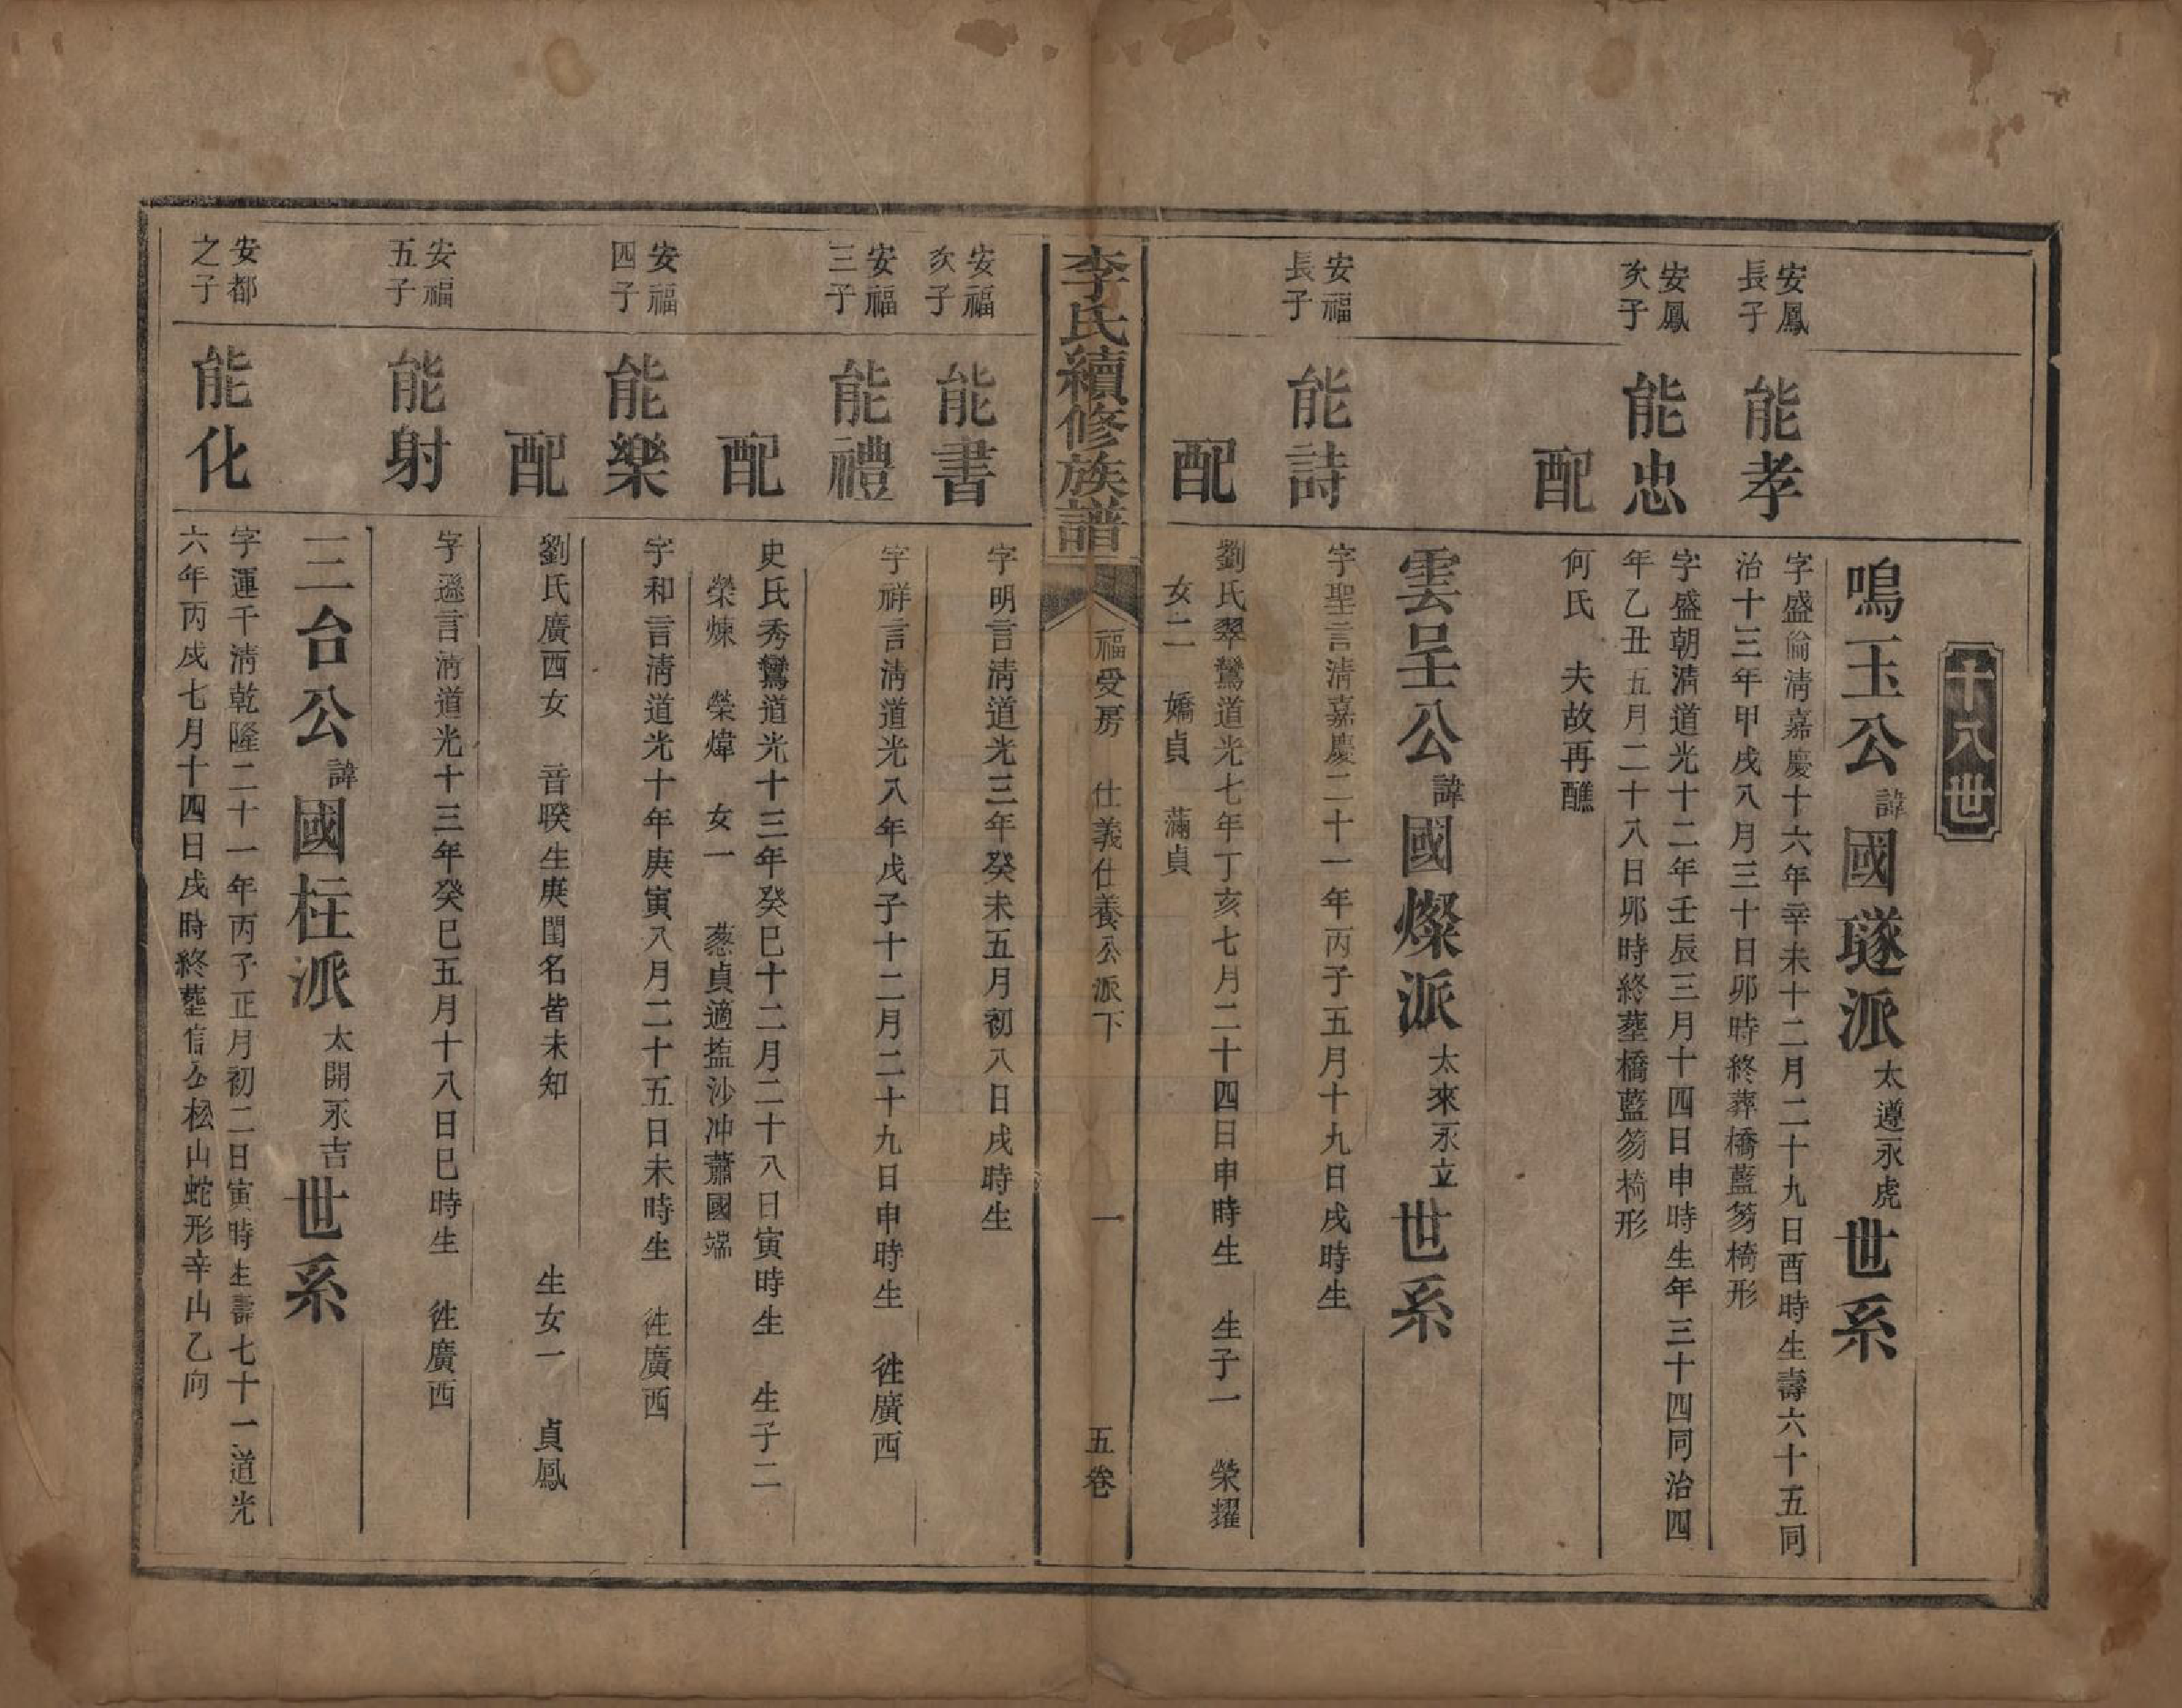 十八世
鳴玉公諱國璲派太遵永虎世系
安鳳長子
能孝
字盛倫淸嘉慶十六年辛未十二月二十九日酉時生壽六十五同
治十三年甲戌八月三十日卯時終葬橋藍芴椅形
安鳳次子
能忠
字盛朝淸道光十二年壬辰三月十四日申時生年三十四同治四
年乙丑五月二十八日卯時終塟橋藍芴椅形
配
何氏 夫故再醮
雲呈公諱國燦派太來永立世系
安福長子
能詩
字聖言淸嘉慶二十一年丙子五月十九日戌時生
配
劉氏翠鸞道光七年丁亥七月二十四日申時生 生子一 榮耀
女二 嬌貞 滿貞
李氏續修族譜
福受房 仕義仕養公派下
一
五卷
安福次子
能書
字明言淸道光三年癸未五月初八日戌時生
安福三子
能禮
字祥言淸道光八年戊子十二月二十九日申時生 徃廣西
配
史氏秀鸞道光十三年癸巳十二月二十八日寅時生 生子二
榮煉 榮煒 女一 葱貞適塩沙冲蕭國端
安福四子
能樂
字和言淸道光十年庚寅八月二十五日未時生 徃廣西
配
劉氏廣西女 音暌生庚閨名皆未知 生女一 貞鳳
安福五子
能射
字遜言淸道光十三年癸巳五月十八日巳時生 徃廣西
三台公諱國柱派太開永吉世系
安都之子
能化
字運千淸乾隆二十一年丙子正月初二日寅時生壽七十一道光
六年丙戌七月十四日戌時終塟信公松山蛇形辛山乙向